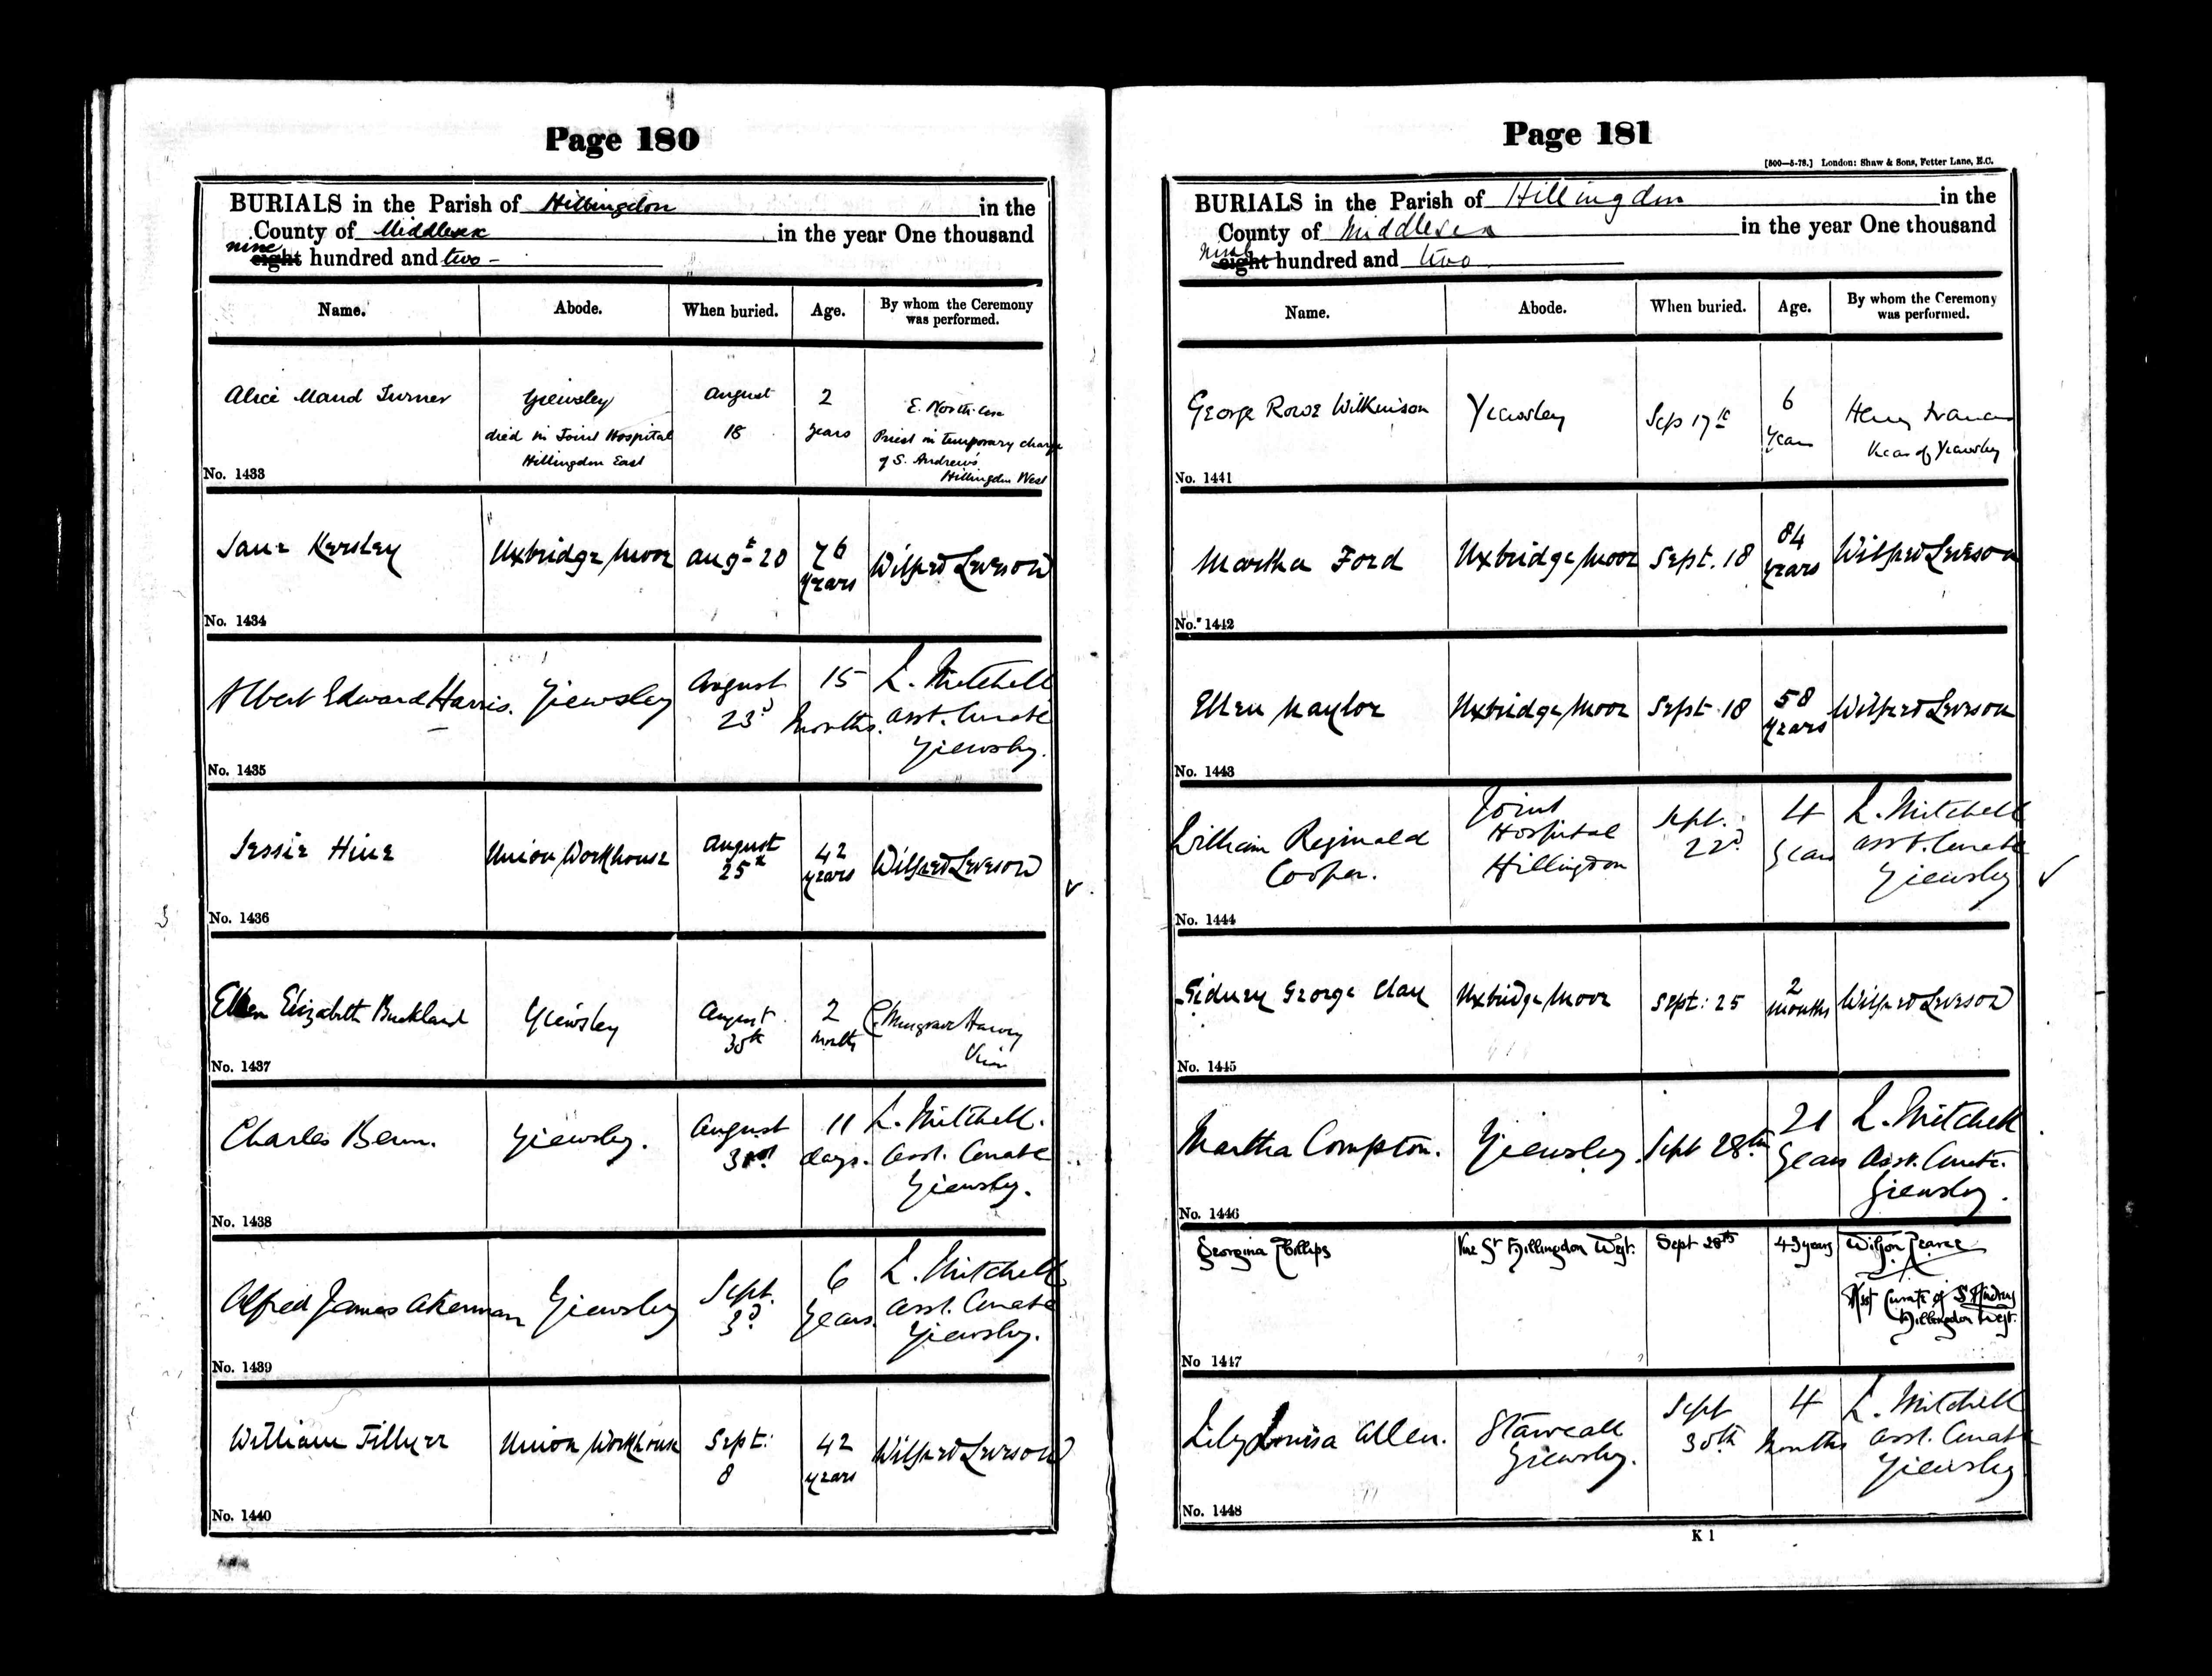 Page 180
BURIALS in the Parish of Hillingdon in the
County of Middlesex in the year One thousand
nine
eight hundred and two -
Name. Abode. When buried. Age. By whom the Ceremony
was performed.
Alice Maud Turner Yiewsley August 2 E. North-
died in Joint Hospital 18 years Priest in temporary charge
Hillingdon East of S. Andrews
Hillingdon West
No. 1433
Jane Kersley Uxbridge Moor Augt 20 76
years Wilfred Leveson
No. 1434
Albert Edward Harris. Yiewsley August 15 L. Mitchell
23d Months. Asst. Curate
Yiewsley.
No. 1435
Jessie Hine Union Workhouse August
25th 42
years Wilfred Leveson
No. 1436
Ellen Elizabeth Buckland Yiewsley August 2 C. Musgrave Harvey
30th months
No. 1437
Charles Benn. Yiewsley. August 11 L. Mitchell.
days. Asst. Curate
Yiewsley.
No. 1438
Alfred James Akerman Yiewsley Sept. 6 L. Mitchell
3d Years. Asst. Curate
Yiewsley.
No. 1439
William Tillyer Union Workhouse Sept: 42 Wilfred Leveson
8 years
No. 1440
Page 181
[500—5-78.] London: Shaw & Sons, Fetter Lane, E.C.
BURIALS in the Parish of Hillingdon in the
County of Middlesex in the year One thousand
nine
eight hundred and two
Name. Abode. When buried. Age. By whom the Ceremony
was performed.
George Rowe Wilkinson Yiewsley Sep 17th 6 Henry Frances
Years Vicar of Yiewsley
No. 1441
Martha Ford Uxbridge Moor Sept. 18 84
years Wilfred Leveson
No. 1442
Ellen Naylor Uxbridge Moor Sept. 18 58
years Wilfred Leveson
No. 1443
William Reginald Joint Sept. 4 L. Mitchell
Cooper. Hospital 22d Years Asst. Curate
Hillingdon Yiewsley
No. 1444
Sidney George Clay Uxbridge Moor Sept: 25 2
months Wilfred Leveson
No. 1445
Martha Compton. Yiewsley. Sept 28th 21 L. Mitchell
Years Asst. Curate.
Yiewsley.
No. 1446
Georgina Phillips Vine St Hillingdon West. Sept 28th 43 years Wilson Pearce
Asst Curate of S Andrews
Hillingdon West.
No 1447
Lily Louisa Allen. Sept 4 L. Mitchell
Yiewsley. 30th Months Asst. Curate
Yiewsley
No. 1448
K 1